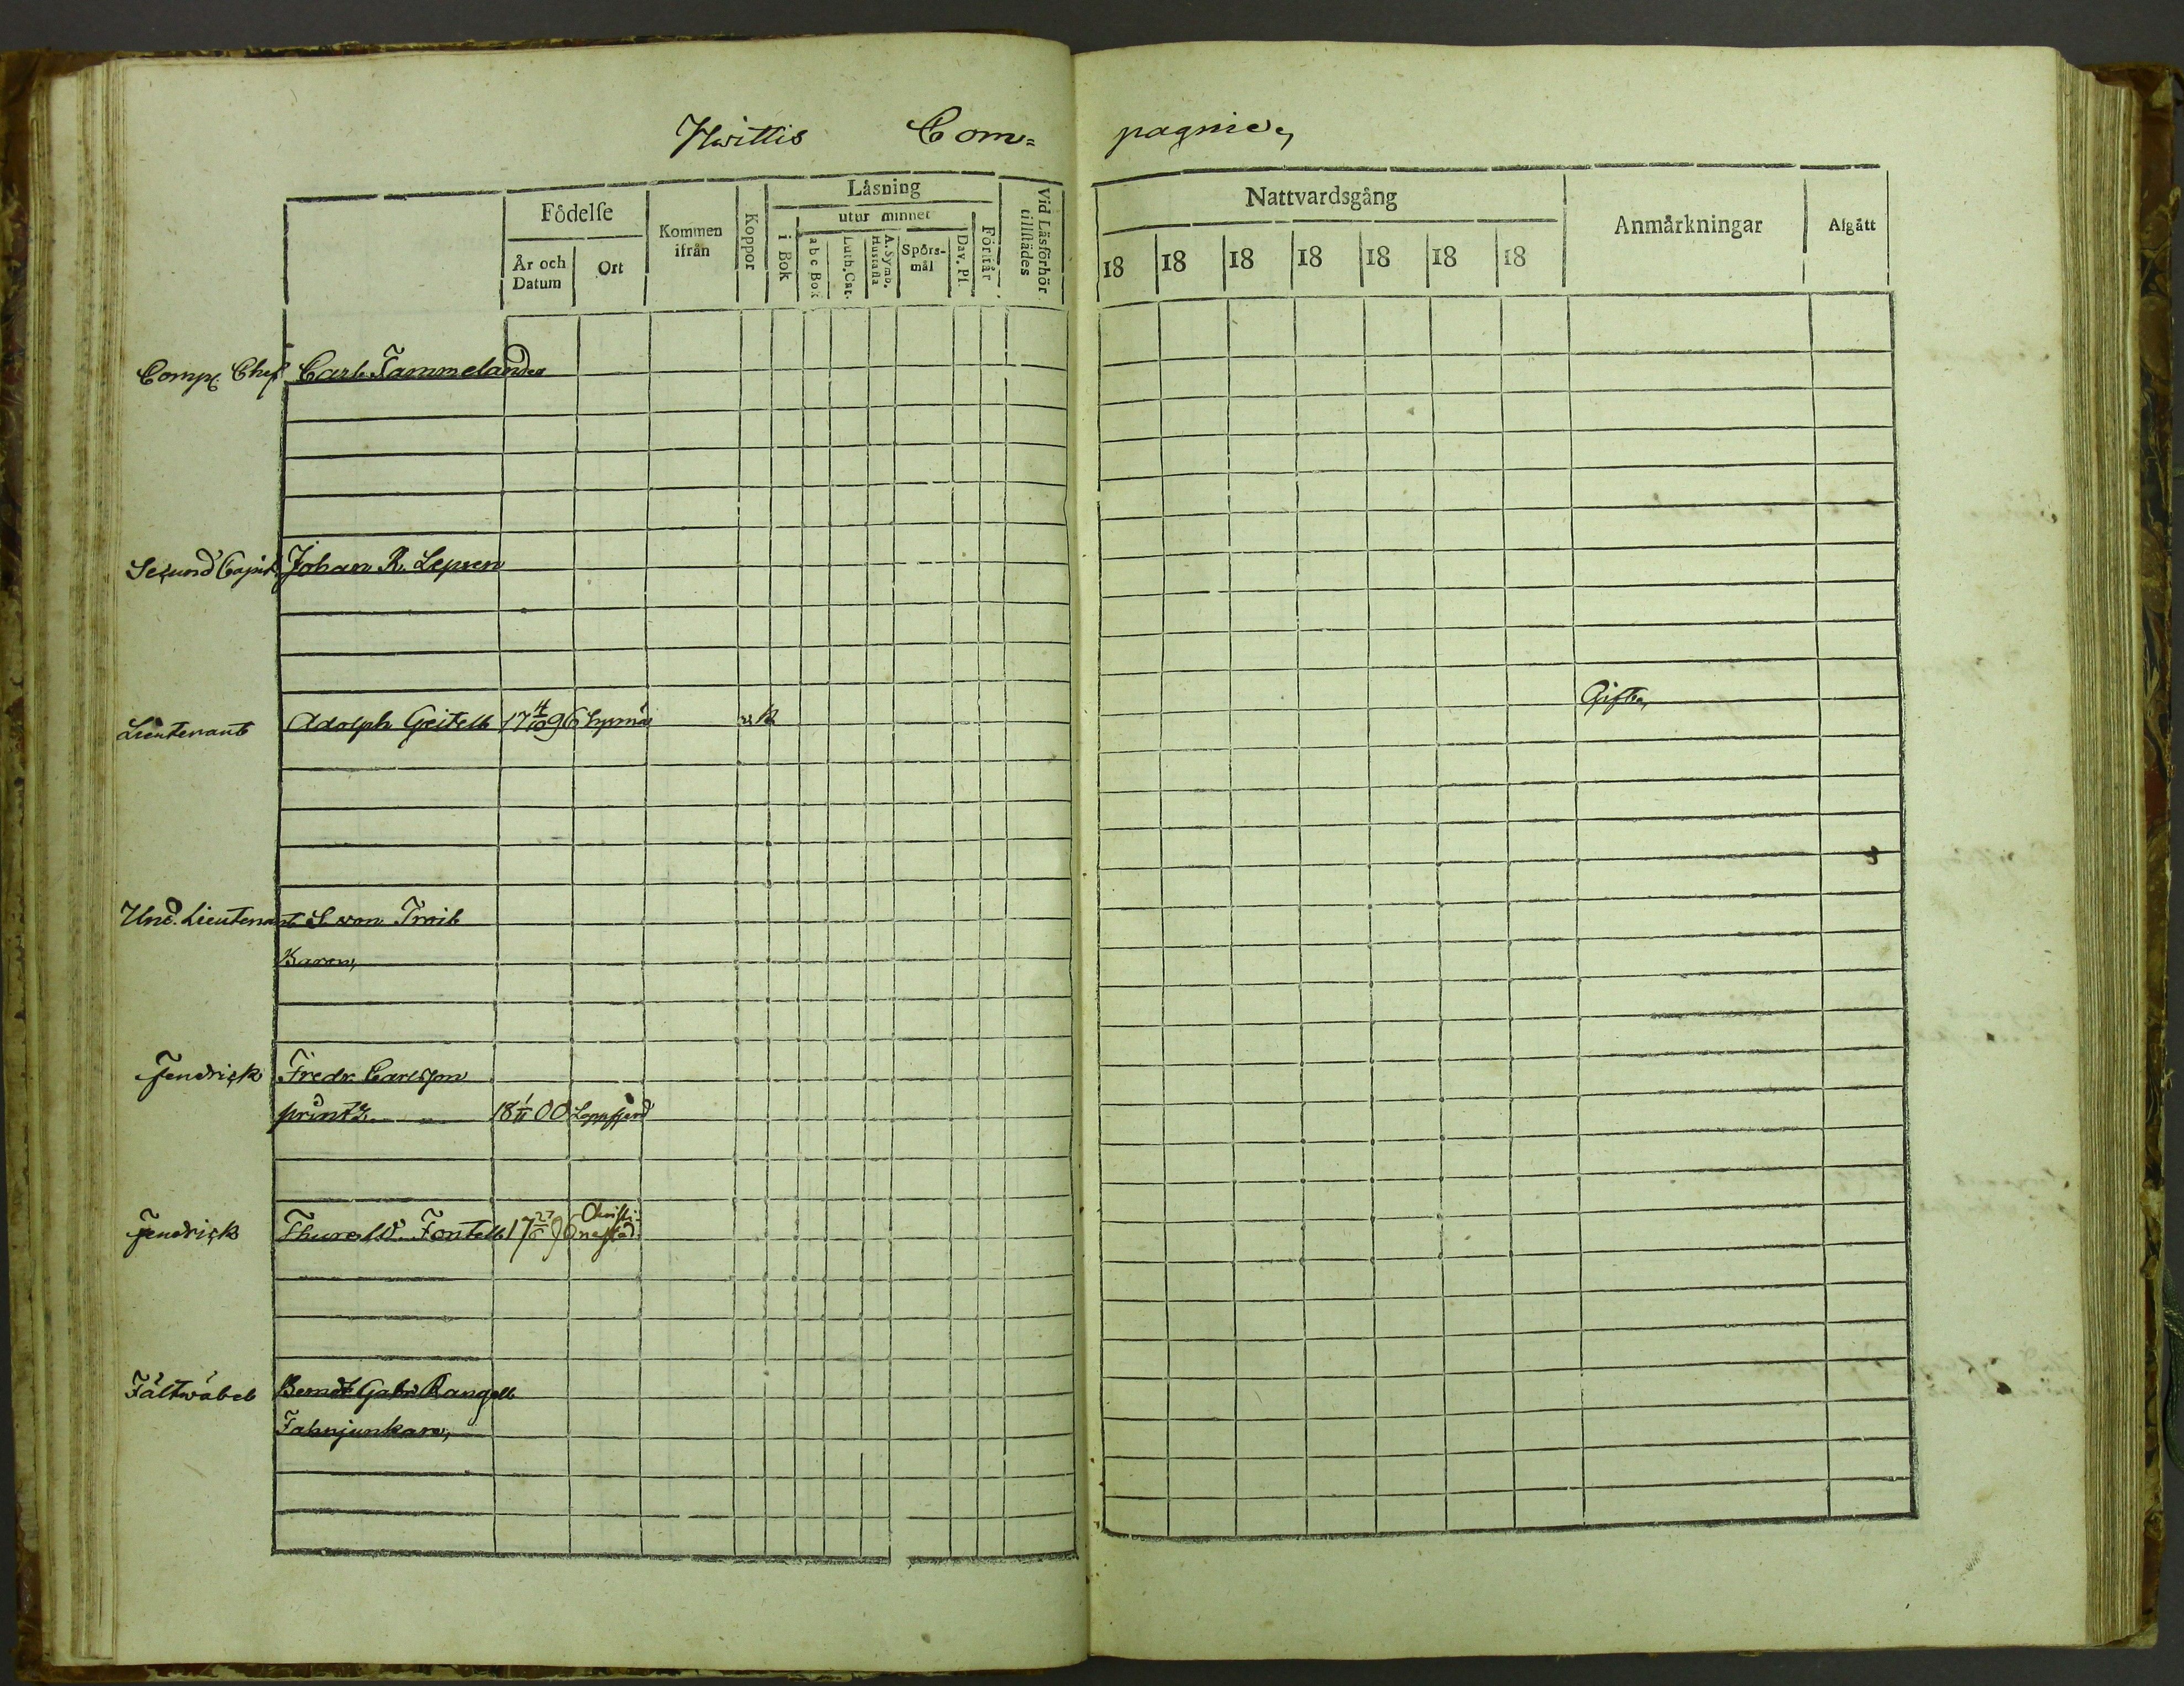 Hwittis Com=
pagnie,
Födelse
År och Datum
Ort
Kommen ifrån
Koppor
Läsning
i Bok
utur minnet
a b c Bok
Luth. Cat.
A. Symb. Hustafla
Spörs-mål
Dav. Ps.
Förstår
Vid Läsförhör tillstädes
Nattvardsgång
18 18 18 18 18 18 18
Anmärkningar
Afgått
Comp. Chef Carl Tammelander
Secund Capit. Johan R. Lepsen
Lieutenant Adolph Geitell 17 4/10 96 k
Gift,
Und. Lieutenant S. von Troil
Baron,
Fendrick Fredr. Carlsson
printz 18 1/11 00 Lappfjerd
Fendrick Thure W. Fontell 17 96 Christi-
nestad
Fältwäbel Berndt Gabr. Rangell
Fahnjunkare,